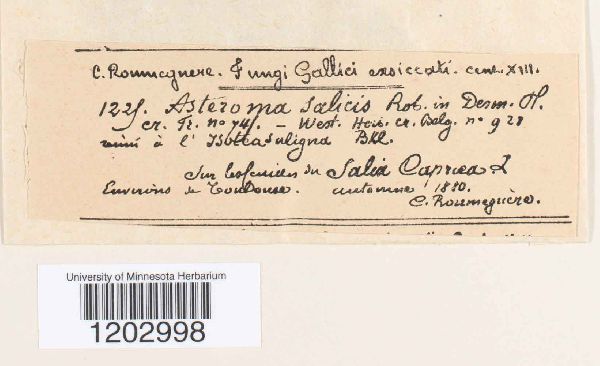 C. Roumeguere. Fungi Gallici exsiccati. cent. XIII.
1225. Asteroma Salicis Rob. in Desm. Pl.
cr. Fr. no 745. – West. Herb. cr. Belg. no 928
réuni à l'
Sur les feuilles du Salix Capraea L
Environs de Toulouse. automne 1880.
C. Roumeguère.
University of Minnesota Herbarium
1202998